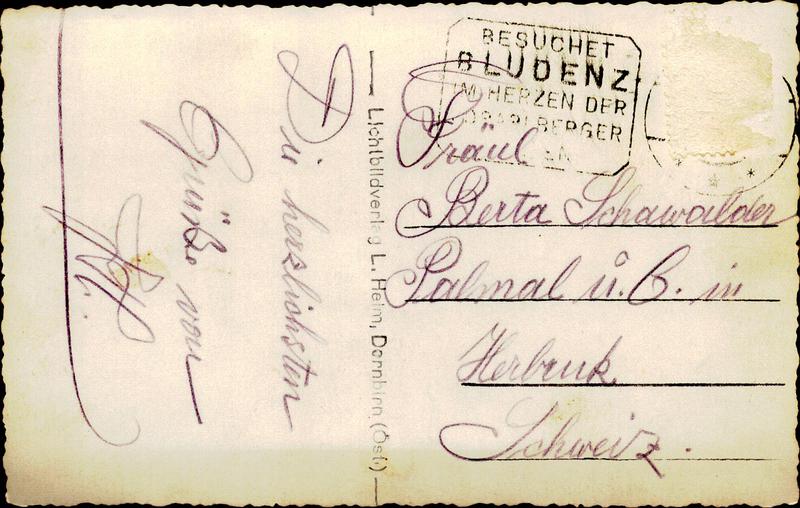 Die herzlichsten
Grüße von
Lichtbildverlag L. Heim, Dornbirn (Öst.)
BESUCHET
BLUDENZ
IM HERZEN DER
VORARLBERGER
Fräul
Berta Schawalder
Palmal u. C. in
Herbruk
Schweiz.